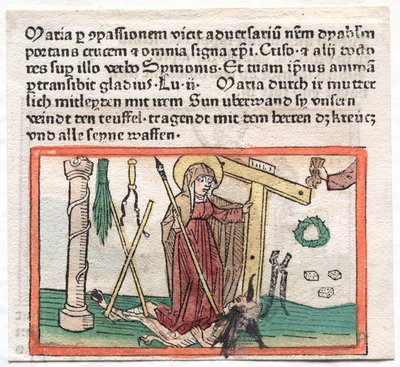 Maria ꝑ ꝯpassionem vicit aduersariū nr̄m dyabolm
portans crucem ⁊ omnia signa xp̄i. Criso. ⁊ alij docto
res suꝑ illo verbo Symonis. Et tuam ip̄ius animā
ꝑtransibit gladius. Lu. ij. Maria durch ir mutter
lich mitleyten mit irem Sun uberwand sy unsern
veindt den teuffel. tragendt mit dem herren dz kreücz
vnd alle seyne waffen.